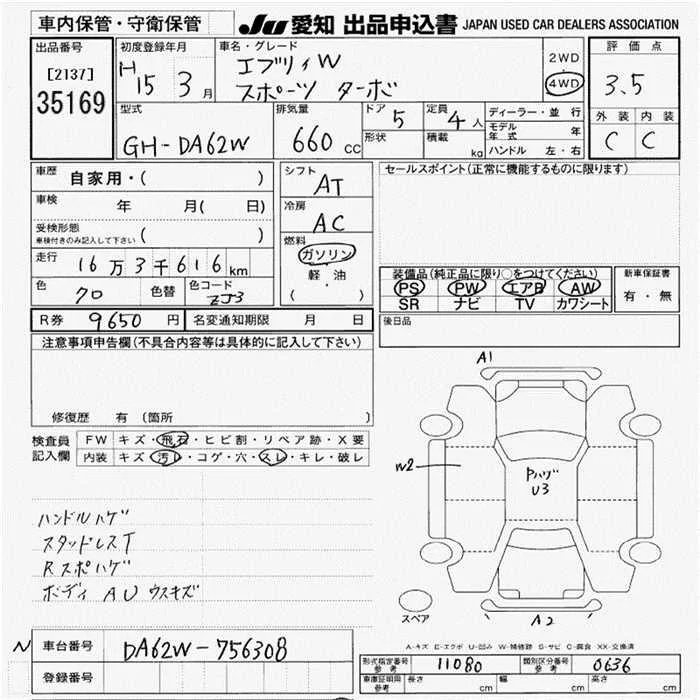 車内保管・守衛保管
JU 愛知 出品申込書 JAPAN USED CAR DEALERS ASSOCIATION
出品番号
[2137]
35169
初度登録年月
H 15 3 月
車名・グレード
エブリィW
スポーツ ターボ
2WD
4WD
評価点
3.5
外装 内装
C C
型式
GH-DA62W
排気量
660 cc
ドア 5
形状
定員 4 人
積載 kg
ディーラー・並行
モデル年式 年
ハンドル 左・右
車歴 自家用・( )
車検 年 月( 日)
受検形態
車検付きのみ記入して下さい ( )
走行 16万3千616km
色 クロ 色替 色コード ZJ3
シフト AT
冷房 AC
燃料
ガソリン
軽・油
( )
セールスポイント(正常に機能するものに限ります)
装備品(純正品に限り○をつけてください)
PS PW エアB AW
SR ナビ TV カワシート
新車保証書
有・無
R券 9650 円 名変通知期限 月 日
後日品
注意事項申告欄(不具合内容等は具体的に記入して下さい)
修復歴 有 (箇所
検査員
記入欄
FW キズ・飛石・ヒビ割・リペア跡・X要
内装 キズ・汚レ・コゲ・穴・スレ・キレ・破レ
ハンドルハゲ
スタッドレスT
Rスポハゲ
ボディ AU ウスキズ
A1
W2
Pハゲ
U3
A2
スペア
A-キズ E-エクボ U-凹み W-補修跡 S-サビ C-腐食 XX-交換済
N 車台番号 DA62W-756308
登録番号
形式指定番号
参考
11080
類別区分番号
参考
0636
車庫証明用
参考
長さ cm 幅 cm 高さ cm